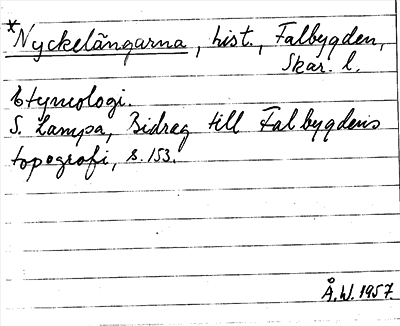 *Nyckelängarna, hist., Falbygden,
Skar. l.
Etymologi.
S. Lampa, Bidrag till Falbygdens
topografi, s. 153.
Å.W. 1957.